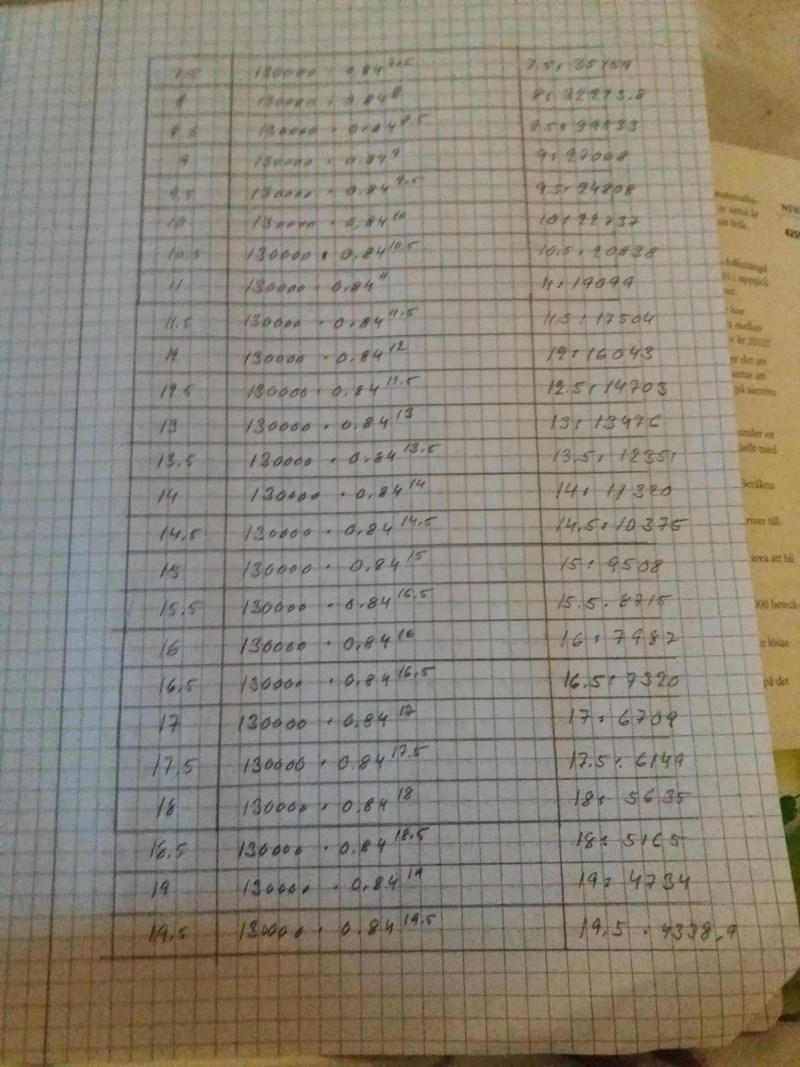 7.5 130000 · 0.84^7.5 7.5: 35159
8 130000 · 0.84^8 8: 32223.8
8.5 130000 · 0.84^8.5
9 130000 · 0.84^9 9: 27068
9.5 130000 · 0.84^9.5 9.5: 24808
10 130000 · 0.84^10 10: 22737
10.5 130000 · 0.84^10.5 10.5: 20838
11 130000 · 0.84^11 11: 19099
11.5 130000 · 0.84^11.5 11.5: 17504
12 130000 · 0.84^12 12: 16043
12.5 130000 · 0.84^12.5 12.5: 14703
13 130000 · 0.84^13 13: 13476
13.5 130000 · 0.84^13.5 13.5: 12351
14 130000 · 0.84^14 14: 11320
14.5 130000 · 0.84^14.5 14.5: 10375
15 130000 · 0.84^15 15: 9508
15.5 130000 · 0.84^15.5 15.5: 8715
16 130000 · 0.84^16 16: 7987
16.5 130000 · 0.84^16.5 16.5: 7320
17 130000 · 0.84^17 17: 6709
17.5 130000 · 0.84^17.5 17.5: 6149
18 130000 · 0.84^18 18: 5635
18.5 130000 · 0.84^18.5 18: 5165
19 130000 · 0.84^19 19: 4734
19.5 130000 · 0.84^19.5 19.5 · 4338.9